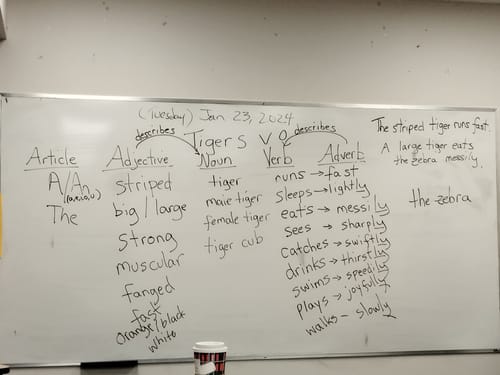 (Tuesday) Jan 23, 2024
describes
describes
Tigers
Article
A/An
The
Adjective
striped
big/large
strong
muscular
fanged
fast
orange/black
white
Noun
tiger
male tiger
female tiger
tiger cub
Verb Adverb
runs → fast
sleeps → lightly
eats → messily
sees → sharply
catches → swiftly
drinks → thirstly
swims → speedily
plays → joyfully
walks - slowly
The striped tiger runs fast.
A large tiger eats
the zebra messily.
the zebra